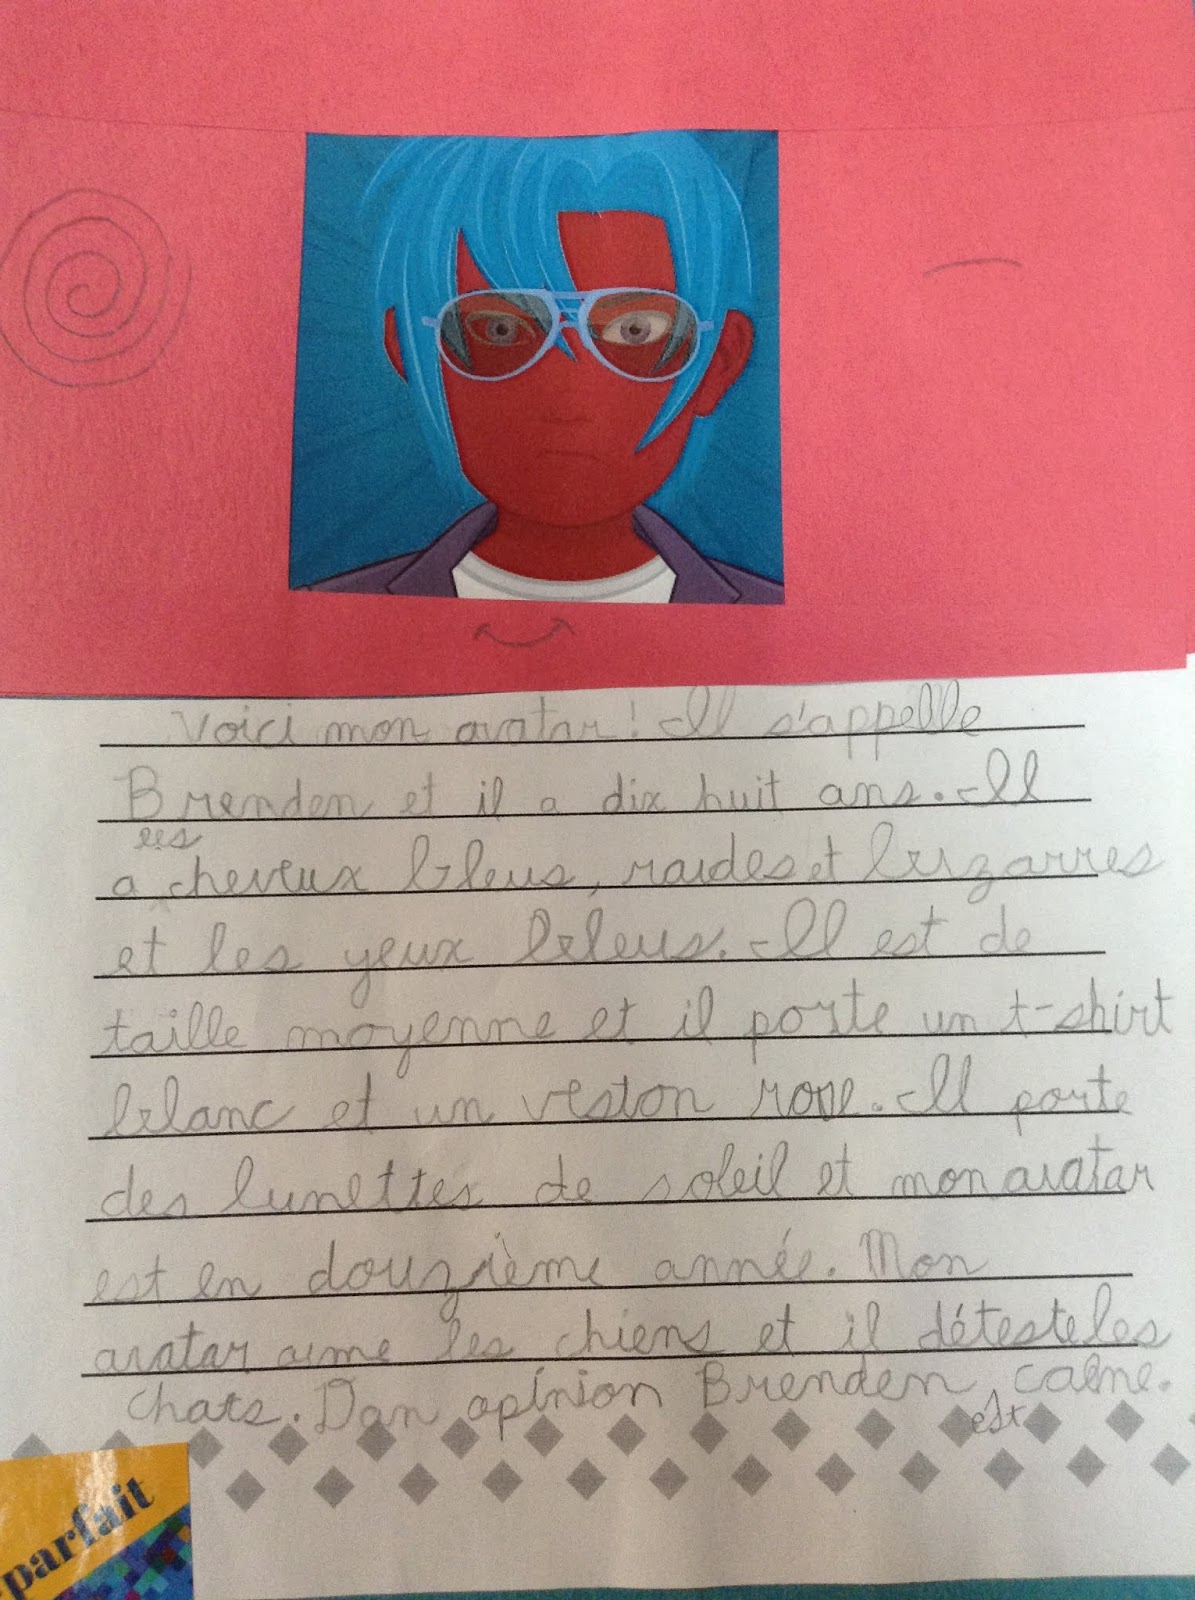 Voici mon avatar! Il s'appelle
Brenden et il a dix huit ans. Il
les
a cheveux bleus, raides et bizarres
et les yeux bleus. Il est de
taille moyenne et il porte un t-shirt
blanc et un veston rose. Il porte
des lunettes de soleil et mon avatar
est en douzième année. Mon
avatar aime les chiens et il déteste les
chats. Dan opinion Brenden calme.
est
parfait